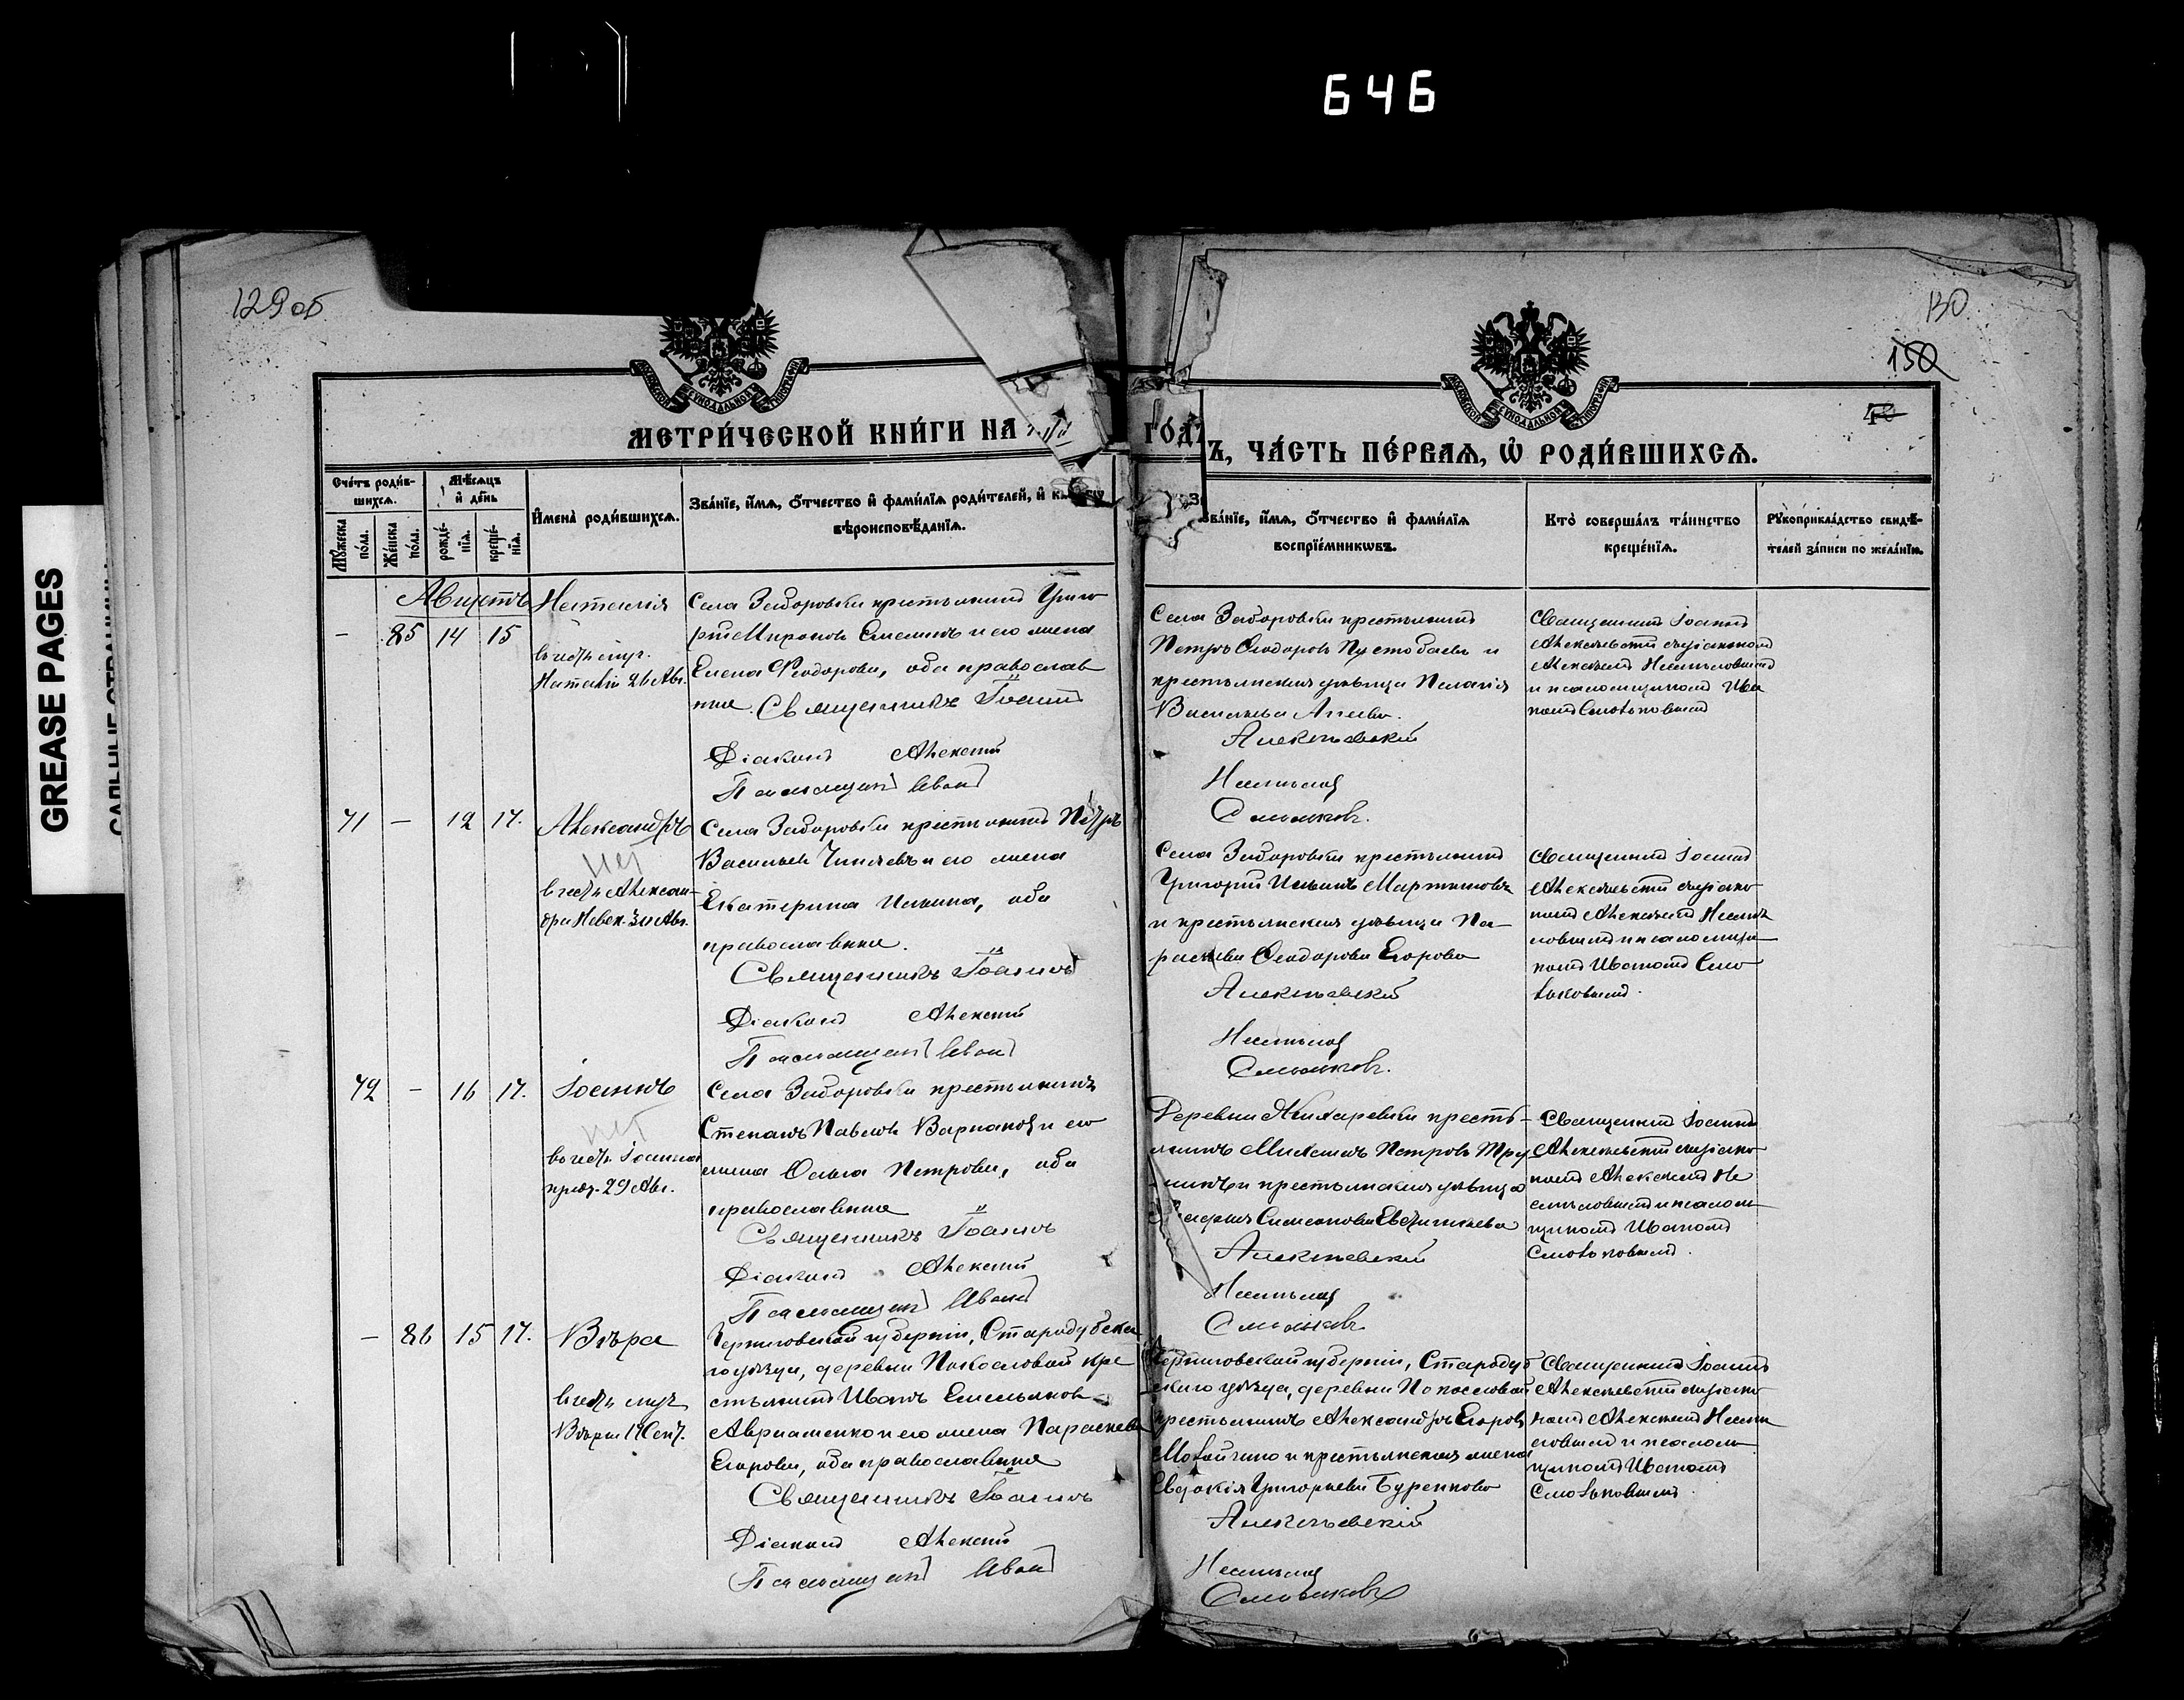 646
GREASE PAGES
129 об
130
150
МЕТРИ́ЧЕСКОЙ КНИ́ГИ НА
ГО́ДЪ, ЧА́СТЬ ПЕ́РВАѦ, Ѡ҆ РОДИ́ВШИХСѦ.
Сче́тъ роди́в-
шихсѧ.
Мѣ́сѧцъ
и҆ де́нь
Мꙋ́жеска
по́ла.
Же́нска
по́ла.
рожде́-
нїѧ.
креще́-
нїѧ.
И҆мена̀ роди́вшихсѧ.
Зва́нїе, и҆́мѧ, ѻ҆́тчество и҆ фами́лїѧ роди́телей, и҆
вѣроисповѣ́данїѧ.
Зва́нїе, и҆́мѧ, ѻ҆́тчество и҆ фами́лїѧ
воспрїе́мникѡвъ.
Кто̀ соверша́лъ та́инство
креще́нїѧ.
Рꙋкоприкла́дство свидѣ́-
телей за́писи по жела́нїю.
Августъ
- 85 14 15
Наталія
въ честь муч.
Наталіи 26 Авг.
Села Заборовки крестьянинъ Григо
рій Мироновъ и его жена
Елена Ѳеодорова, оба православ
ные. Священникъ Іоаннъ
Діаконъ Алексій
Псаломщикъ Иванъ
Села Заборовки крестьянинъ
Петръ Ѳеодоровъ Пустобаевъ и
крестьянская дѣвица Пелагія
Васильева
Алексѣевскій
Смольковъ.
Священникъ Іоаннъ
Алексѣевскій съ діакономъ
Алексіемъ
и псаломщикомъ Ива
номъ Смольковымъ
71 - 12 17.
Александръ
нет
въ честь Алексан-
дра Невск. 30 Авг.
Села Заборовки крестьянинъ Петръ
Васильевъ и его жена
Екатерина Ильина, оба
православные.
Священникъ Іоаннъ
Діаконъ Алексій
Псаломщикъ Иванъ
Села Заборовки крестьянинъ
Григорій Ильинъ Мартыновъ
и крестьянская дѣвица Па-
раскева Ѳеодорова Егорова
Алексѣевскій
Смольковъ.
Священникъ Іоаннъ
Алексѣевскій съ діако-
номъ Алексіемъ
и псаломщи-
комъ Иваномъ Смо-
льковымъ.
72 - 16 17.
Іоаннъ
нет
въ честь Іоанна
предт. 29 Авг.
Села Заборовки крестьянинъ
Степанъ Павловъ и его
жена Ольга Петрова, оба
православные
Священникъ Іоаннъ
Діаконъ Алексій
Псаломщикъ Иванъ
Деревни Жихаревки кресть-
янинъ Михаилъ Петровъ
и крестьянская дѣвица
Симеонова Евстигнѣева
Алексѣевскій
Смольковъ
Священникъ Іоаннъ
Алексѣевскій съ діако-
номъ Алексіемъ
и псалом-
щикомъ Иваномъ
Смольковымъ.
- 86 15 17.
Вѣра
въ честь муч.
Вѣры 17 Сент.
Черниговской губерніи, Стародубска
го уѣзда, деревни кре
стьянинъ Иванъ Емельяновъ
Авраменко и его жена Параскева
Егорова, оба православные
Священникъ Іоаннъ
Діаконъ Алексій
Псаломщикъ Иванъ
Черниговской губерніи, Стародуб
скаго уѣзда, деревни
крестьянинъ Александръ Егоровъ
и крестьянская жена
Евдокія Григорьева Буренкова
Алексѣевскій
Смольковъ
Священникъ Іоаннъ
Алексѣевскій съ діако-
номъ Алексіемъ
и псалом-
щикомъ Иваномъ
Смольковымъ.